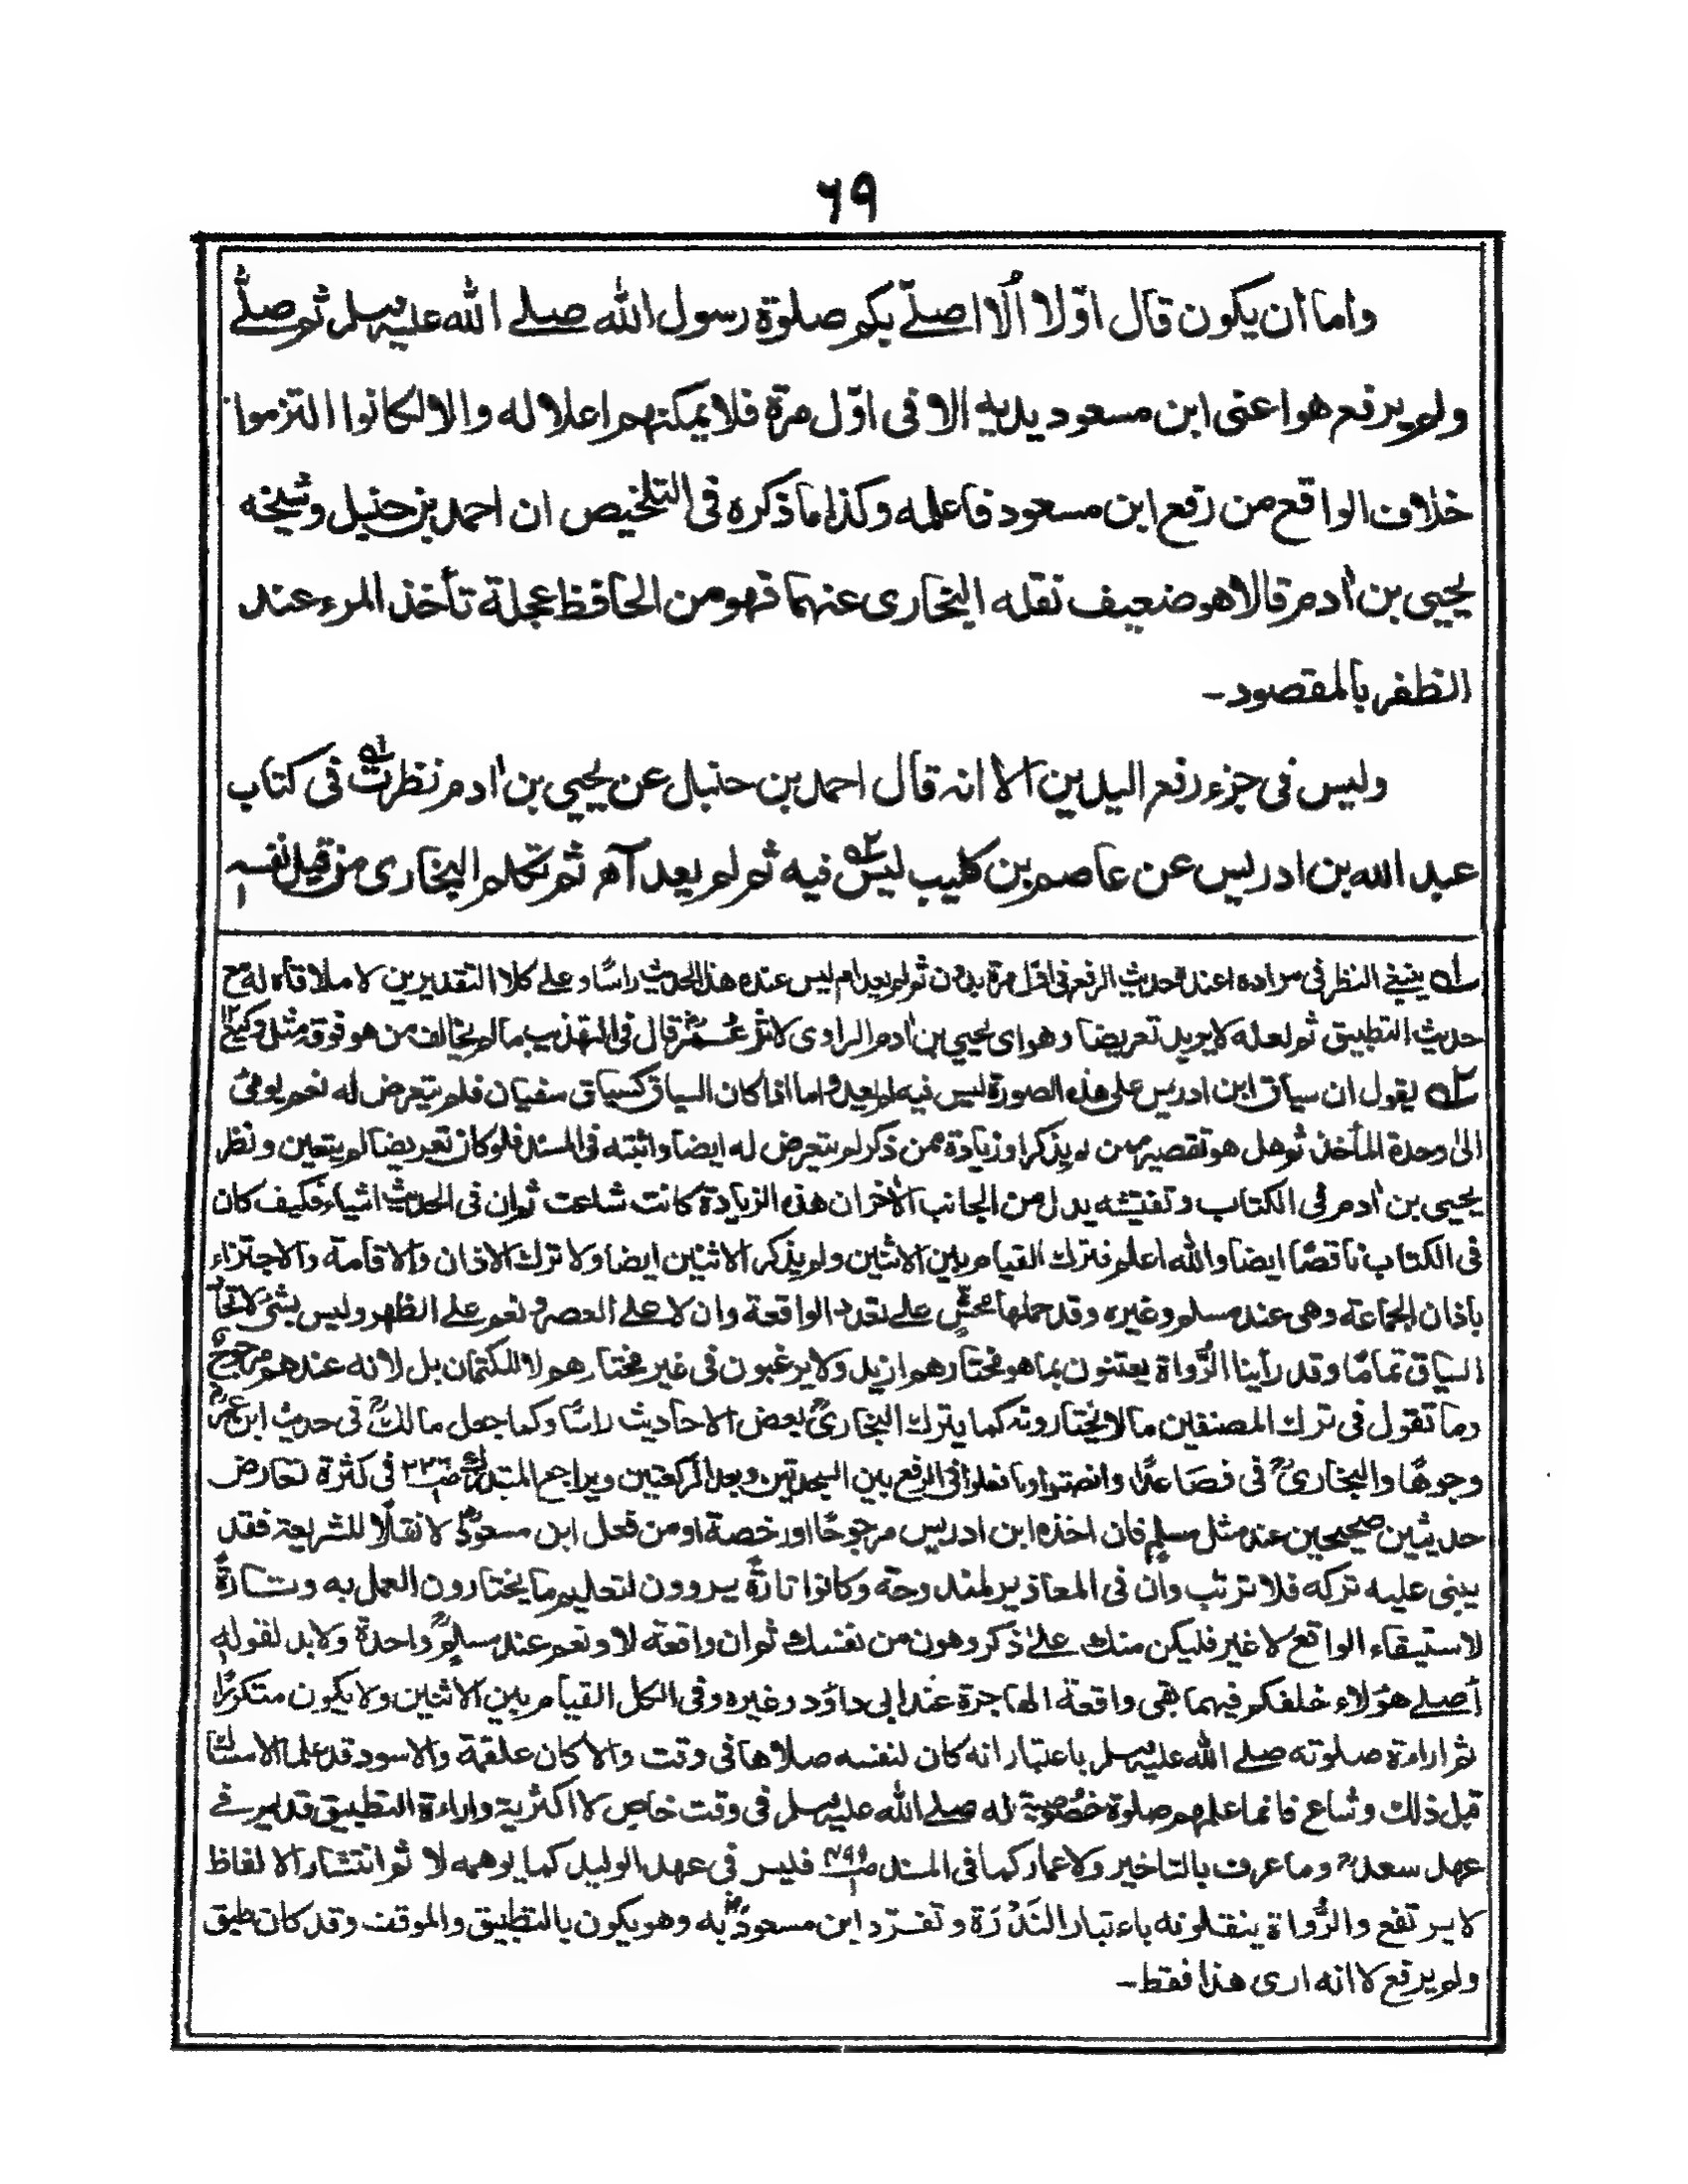 ٦٩
واما ان يكون قال اوّلا اَلَا اصلّے بكم صلوة رسول الله صلے الله علیہ وسلم ثم صلّٰے
ولم يرفع هو اعنى ابن مسعود يديه الا فى اوّل مرّة فلا يمكنهم اعلاله والا لكانوا التزموا
خلاف الواقع من رفع ابن مسعود فاعلمه وكذا ما ذكره فى التلخيص ان احمد بن حنبل وشيخه
يحيى بن اٰدم قالا هو ضعيف نقله البخارى عنهما فهو من الحافظ عجلة تأخذ المرء عند
الظفر بالمقصود۔
وليس فى جزء رفع اليدين الا انہ قال احمد بن حنبل عن يحيى بن اٰدم نظرت ١ فى كتاب
عبد الله بن ادريس عن عاصم بن كليب ليس ٢ فيه ثم لم يعد آھ ثم تكلم البخارى من قبل نفسہ
١ ينبغى النظر فى مراده اعنده حديث الرفع فى اول مرة بدون ثم لم يعد ام ليس عنده هذا الحديث راسًا وعلے كلا التقديرين لا ملاقاة له مع
حديث التطبيق ثم لعله لا يريد تعريضا وهو اى يحيى بن اٰدم الراوى لاثر عمرؓ قال فى التهذيب ما لم يخالف من هو فوقہ مثل وكيع ١٢
٢ يقول ان سياق ابن ادريس على هذه الصورة ليس فيه لم يعد واما اذا كان السياق كسياق سفيان فلم يتعرض له نعم يومئ
الىٰ وحدة المأخذ ثم هل هو تقصير ممن لم يذكر او زيادة ممن ذكر لم يتعرض له ايضا واثبته فى المسند فلو كان تعريضا لم يتعين ونظر
يحيى بن اٰدم فى الكتاب وتفتيشه يدل من الجانب الاٰخر ان هذه الزيادة كانت شاعت ثم ان فى الحديث اشياء فكيف كان
فى الكتاب ناقصًا ايضا والله اعلم فترك القيام بين الاثنين ولم يذكر الاثنين ايضا ولا ترك الاذان والاقامة والاجتزاء
باذان الجماعة وهى عند مسلم وغيره وقد حملها علے تعدد الواقعة وان لا علے العصر ونعم علے الظهر وليس بشئ لاتحاد
السياق تمامًا وقد رأينا الرُّواة يعتنون بما هو مختارهم ازيد ولا يرغبون فى غير مختارهم لا للكتمان بل لانه عندهم مرجوح
وما تقول فى ترك المصنفين ما لا يختارونہ كما يترك البخارىؒ بعض الاحاديث راسًا وكما جعل مالكؒ فى حديث ابن عمرؓ
وجوهًا والبخارىؒ فى فصاعدًا وانصتوا وما نقلوا فى الرفع بين السجدتين وبعد الركعتين ويراجع فى كثرة تعارض
حديثين صحيحين عند مثل مسلم فان اخذه ابن ادريس مرجوحًا او رخصة او من فعل ابن مسعودؓ لا نقلًا للشريعة فقد
يبنى عليه تركه فلا ترتب وان فى المعاذير لمندوحة وكانوا تارةً يروون لتعليم ما يختارون العمل به وتارةً
لاستيفاء الواقع لا غير فليكن منك علىٰ ذكر وهون من نفسك ثم ان واقعة لا ونعم عند مسلمؒ واحدة ولا بد لقوله
أصلے هؤلاء خلفكم فيهما فهى واقعة الهاجرة عند ابى داؤد وغيره وفى الكل القيام بين الاثنين ولا يكون متكررًا
ثم اراءة صلوته صلے الله علیہ وسلم باعتبار انه كان لنفسه صلاها فى وقت والا كان علقمة والاسود قد علما الاستنان
قبل ذلك وشاع فانما علمهم صلوة خصوصية له صلے الله علیہ وسلم فى وقت خاص لا اكثرية واراءة التطبيق قد لم ير فے
عهد سعدؓ وما عرف بالتاخير ولا عمار كما فى المسند فليس فى عهد الوليد كما يوهمه لا ثم انتشار الالفاظ
لا يرتفع والرُّواة ينقلونه باعتبار النَدْرَة وتفرّد ابن مسعودؓ به وهو يكون بالتطبيق والموقف وقد كان طبق
ولم يرفع لا انه ارى هذا فقط۔